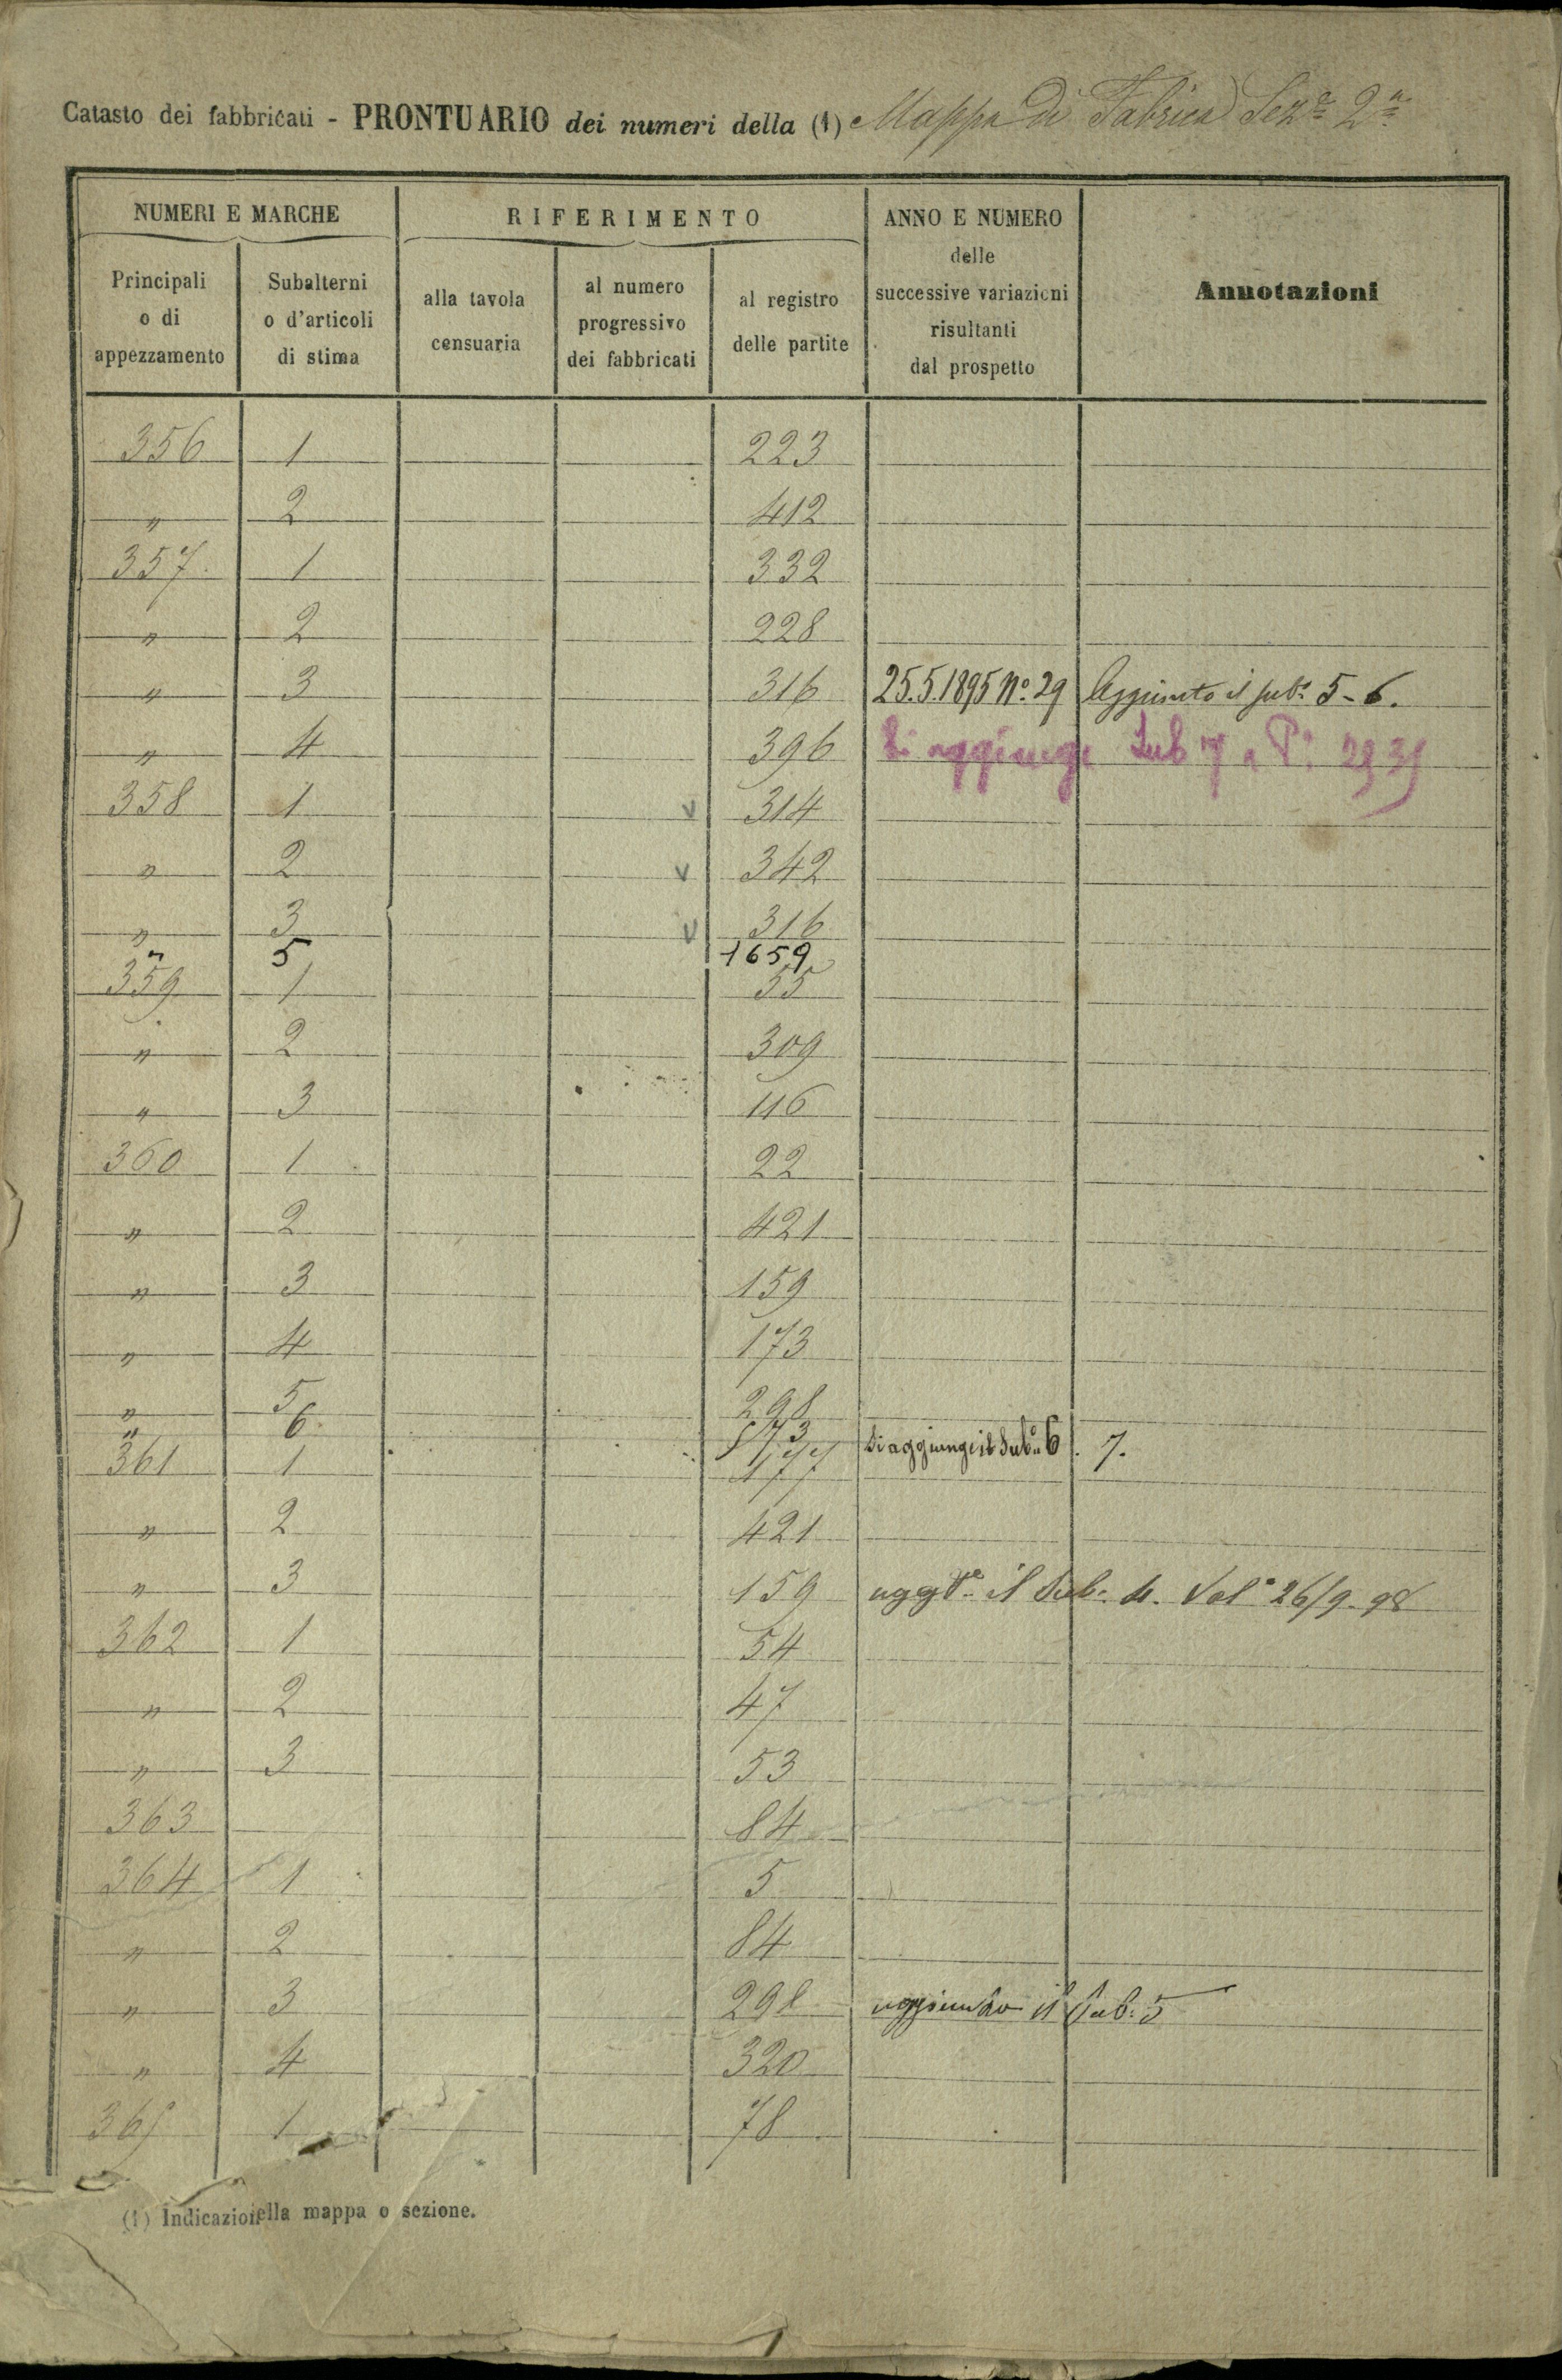 Catasto dei fabbricati - PRONTUARIO dei numeri della (1) Mappa di Fabrica Seze 2a
NUMERI E MARCHE
RIFERIMENTO
ANNO E NUMERO
delle
successive variazioni
risultanti
dal prospetto
Annotazioni
Principali
o di
appezzamento
Subalterni
o d'articoli
di stima
alla tavola
censuaria
al numero
progressivo
dei fabbricati
al registro
delle partite
356 1 223
" 2 412
357 1 332
" 2 228
" 3 316 25.5.1895 No. 29 Aggiunto il sub. 5-6.
" 4 396 Si aggiunge Sub 7 a Pa
358 1 v 314
" 2 v 342
" 3 v 316
" 5 1659
359 1 55
" 2 309
" 3 116
360 1 22
" 2 421
" 3 159
" 4 173
" 5 298
" 6 573 Si aggiunge il Sub. 6. 7.
361 1 177
" 2 421
" 3 159 aggto il Sub. 4. Vol. 26/9-98
362 1 54
" 2 47
" 3 53
363 84
364 1 5
" 2 84
" 3 298 aggiunto il Sub. 5
" 4 320
365 1 78
(1) Indicazione della mappa o sezione.